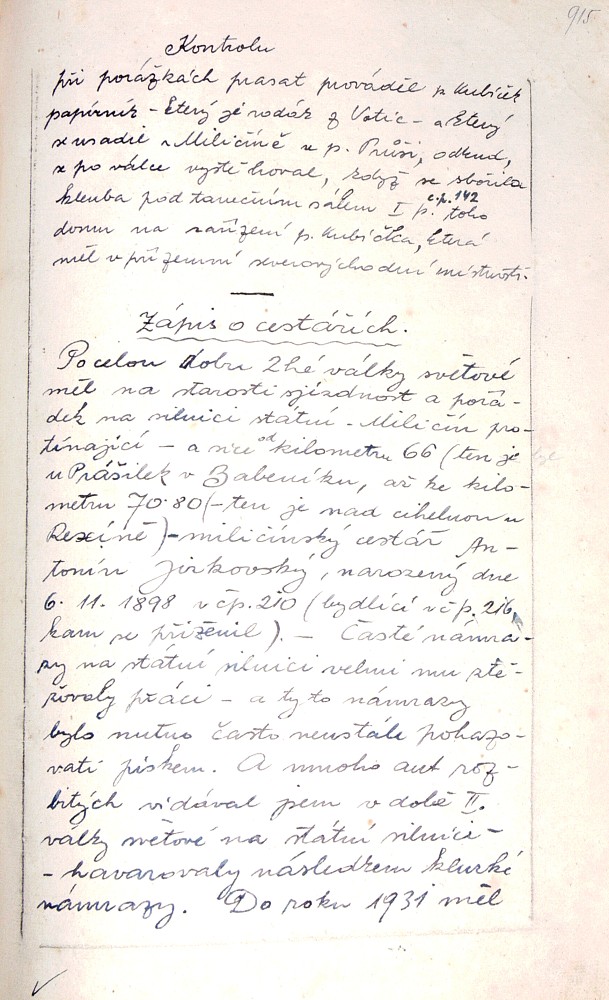 915
Kontrolu
při porážkách prasat prováděl p. Kubíček
papírník - který je rodák z Votic - a který
se usadil v Miličíně u p. Průši, odkud,
se po válce vystěhoval, když se sbořila
klenba pod tanečním sálem I p. toho
č.p. 142
domu na zařízení p. Kubíčka, která
měl v přízemní
Zápis o cestářích.
Po celou dobu 2hé války světové
měl na starosti sjízdnost a pořá-
dek na silnici státní - Miličín pro-
tínající - a sice od kilometru 66 (ten je
u Prášilek v Babeníku, až ke kilo-
metru 70·80 (- ten je nad cihelnou u
) - miličínský cestář An-
tonín Jirkovský, narozený dne
6. 11. 1898 v čp. 210 (bydlící v č p. 216,
kam se přiženil). - Časté námra-
zy na státní silnici velmi mu ztě-
žovaly práci - a tyto námrazy
bylo nutno často neustále pohazo-
vati pískem. A mnoho aut roz-
bitých vídával jsem v době II.
války světové na státní silnici -
- havarovaly následkem kluzké
námrazy. Do roku 1931 měl